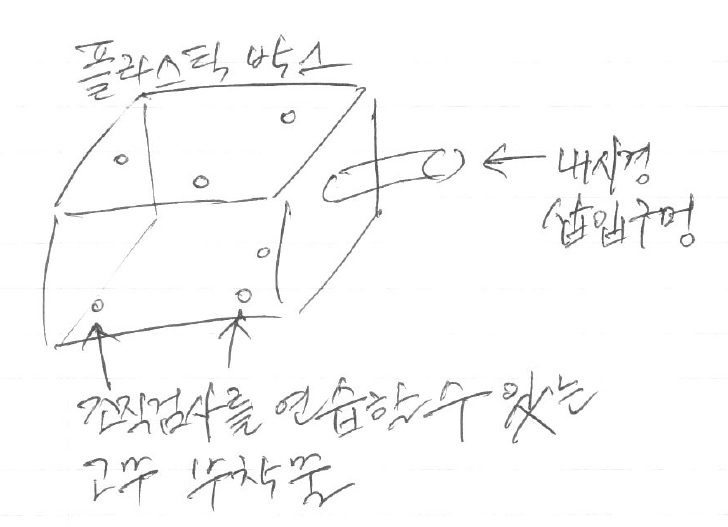 플라스틱 박스
내시경
삽입구멍
조직검사를 연습할 수 있는
고무 부착물